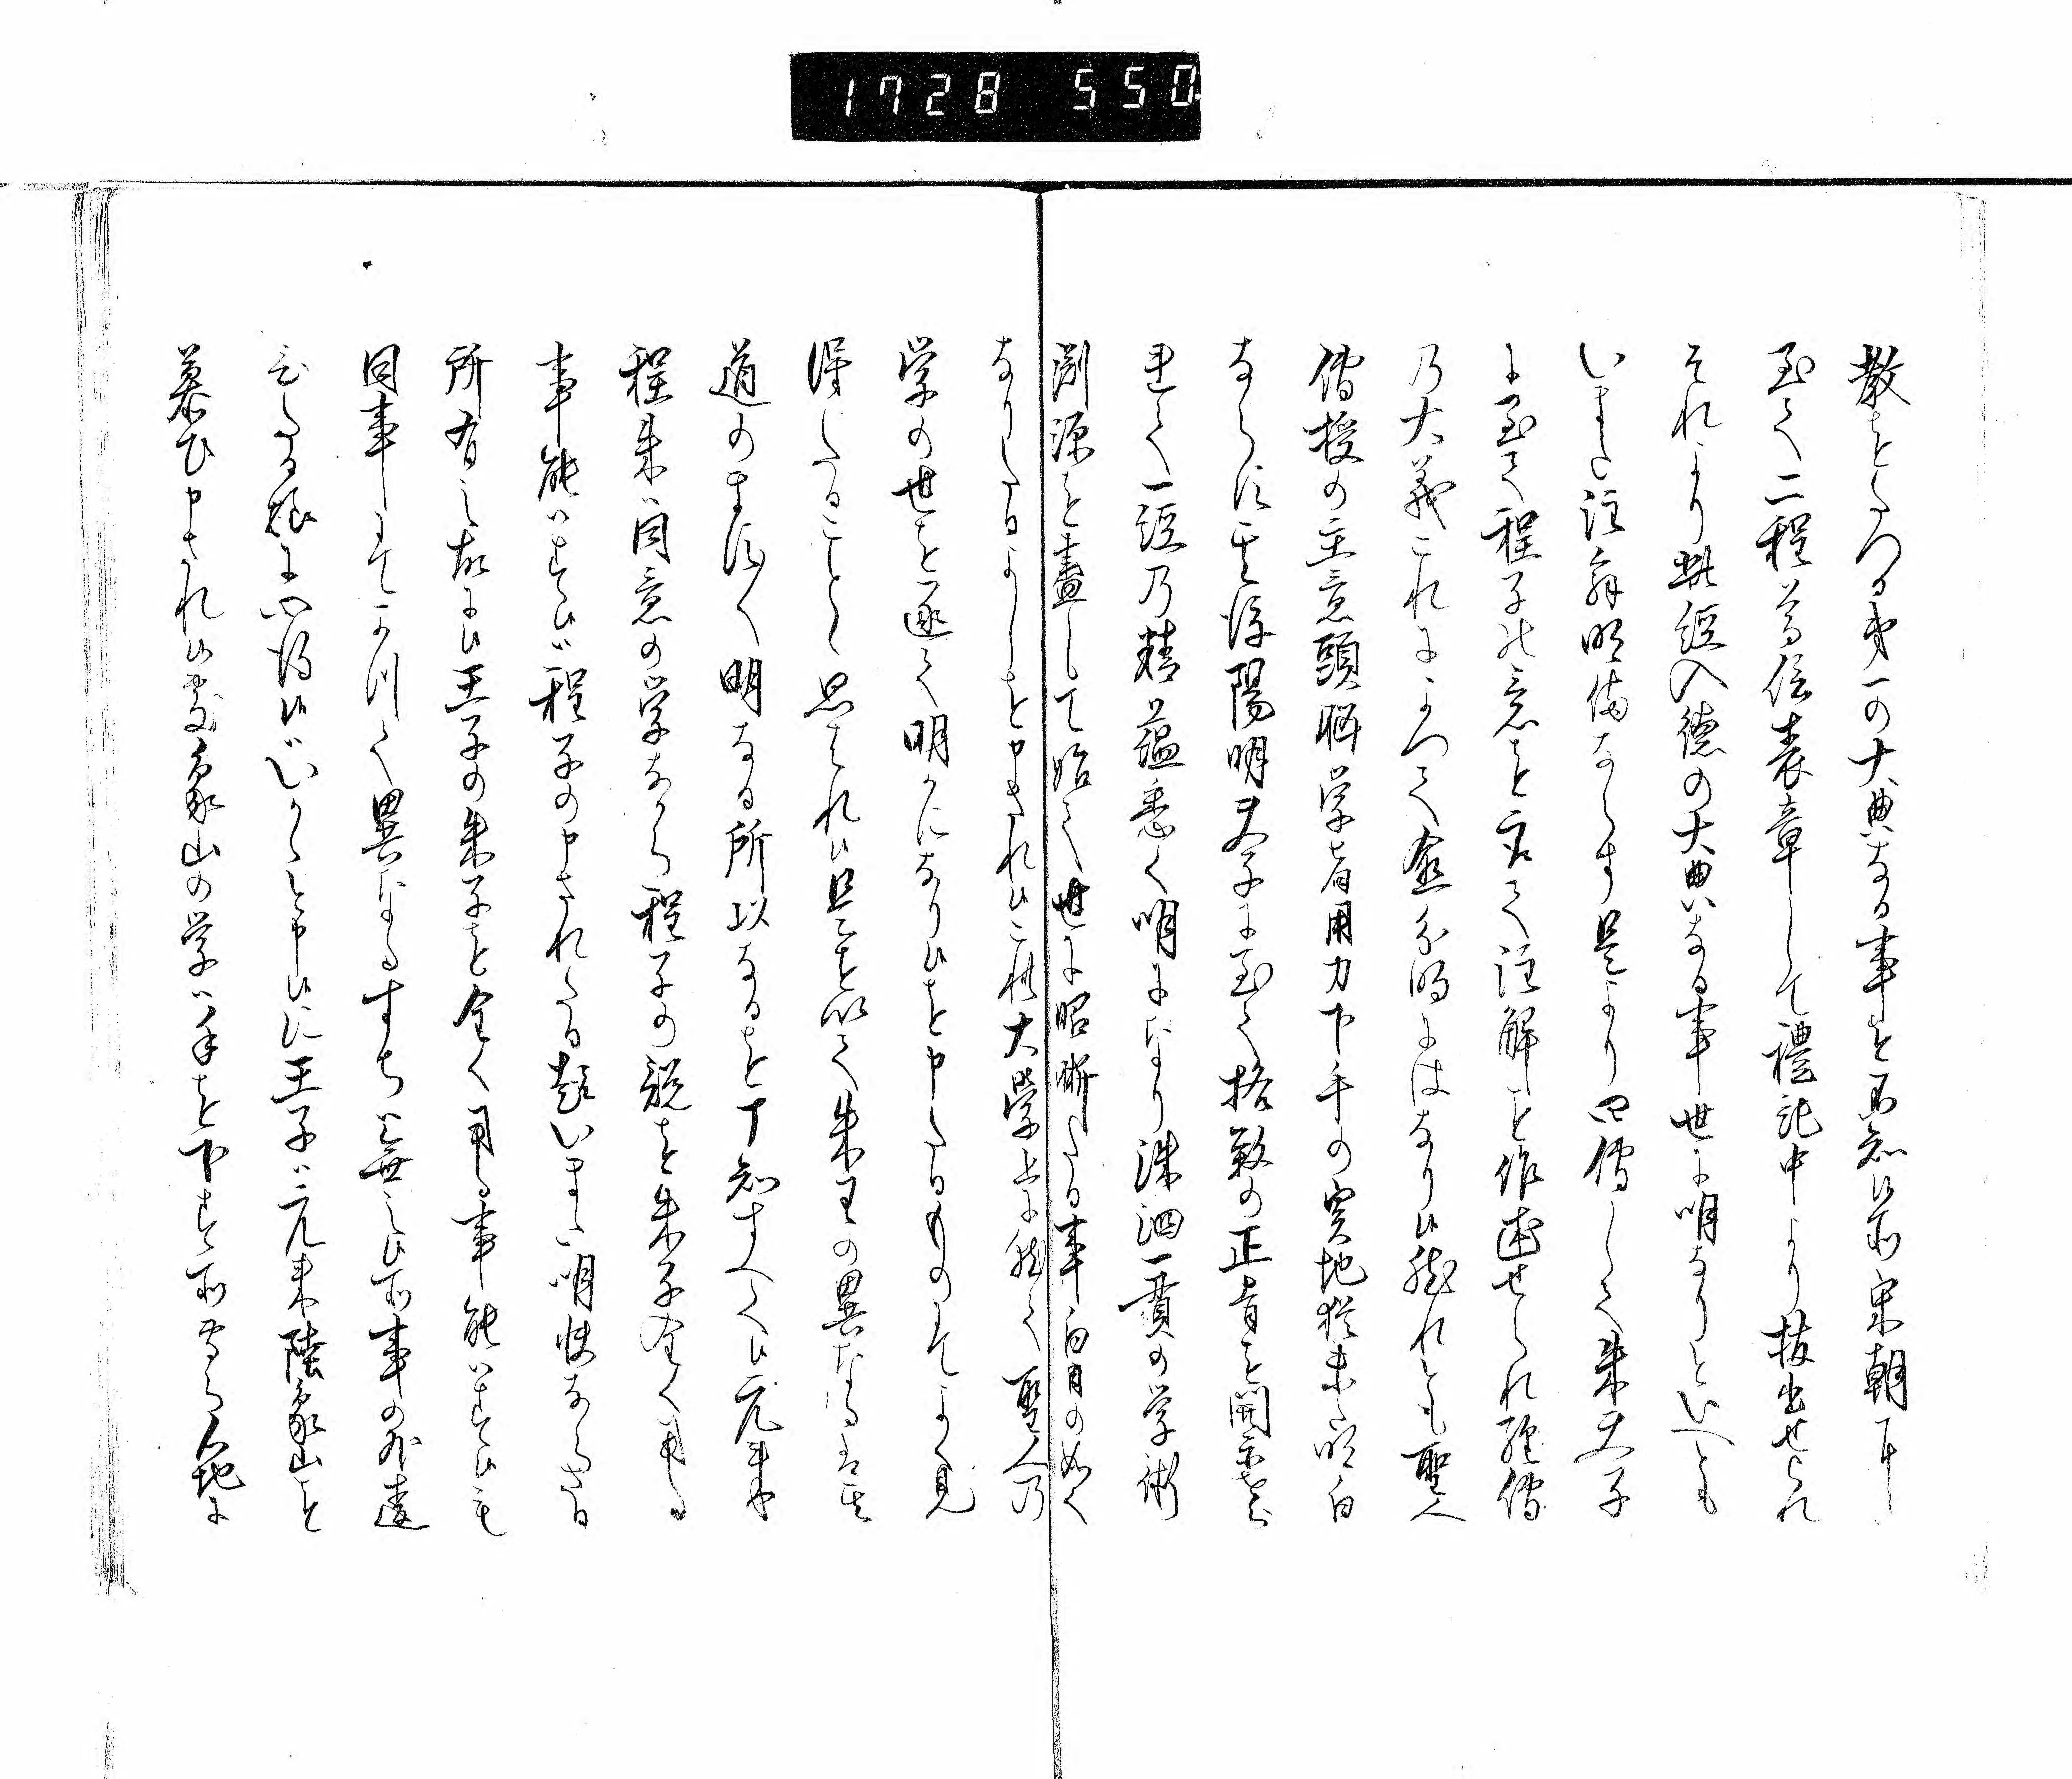 1728 550
教をとたつる第一の大典なる事を不知候所宋朝に
至て二程尊信表章して禮記中より抜出せられ
それより此経入徳の大典なる事世に明なりといへとも
いまた注解明備ならす是より四傳して朱夫子
に至て程子の意を承て注解を作述せられ経傳
乃大義これによつて愈分明にはなり候然れとも聖人
傳授の主意頭脳学者用力下手の実地猶未明白
ならす其後陽明夫子に至て格致の正旨を開示せら
れて一経乃精蘊悉く明になり洙泗一貫の学術
淵源を盡して始て世に昭晰たる事白日の如く
なりたるよしを申され候これ大学上に就て聖人乃
学の世を逐て明かになり候を申たるものにてよく見
得したることと思はれ候是を以て朱王の異なるは其
道のますます明なる所以なるを可知すへく候元来
程朱は同意の学なから程子の説を朱子全く用る
事能はす候は程子の申されたる趣いまた明快ならさる
所有之故に候王子の朱子を全く用る事能はす候も
同事にてかつて異なるすち無之候所事の外遠
むたる様に心得候がしからと申候に王子は元来陸象山を
慕ひ申され候處象山の学は手を下す所高く心地に